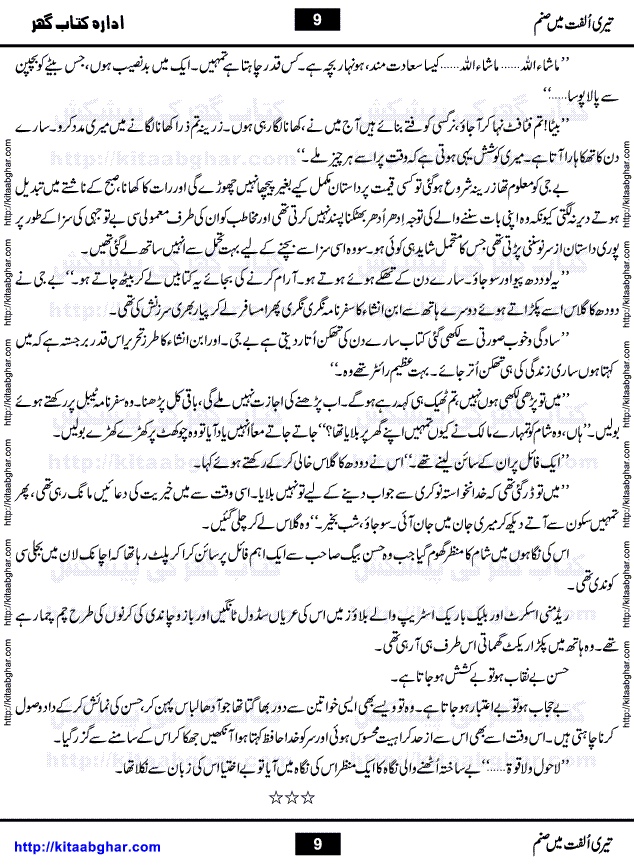 ادارہ کتاب گھر 9 تیری اُلفت میں صنم
’’ماشاءاللہ...... ماشاءاللہ...... کیسا سعادت مند، ہونہار بچہ ہے۔ کس قدر چاہتا ہے تمہیں۔ ایک میں بدنصیب ہوں، جس بیٹے کو بچپن
سے پالا پوسا......‘‘
’’بیٹا! تم فٹافٹ نہا کر آجاؤ، نرگسی کوفتے بنائے ہیں آج میں نے، کھانا لگا رہی ہوں۔ زرینہ تم ذرا کھانا لگانے میں میری مدد کرو۔ سارے
دن کا تھکا ہارا آتا ہے۔ میری کوشش یہی ہوتی ہے کہ وقت پر اسے ہر چیز ملے۔‘‘
بے جی کو معلوم تھا زرینہ شروع ہوگئی تو کسی قیمت پر داستان مکمل کیے بغیر پیچھا نہیں چھوڑے گی اور رات کا کھانا، صبح کے ناشتے میں تبدیل
ہوتے دیر نہ لگتی کیونکہ وہ اپنی بات سننے والے کی توجہ اِدھر اُدھر بھٹکنا پسند نہیں کرتی تھی اور مخاطب کو ان کی طرف معمولی سی بے توجہی کی سزا کے طور پر
پوری داستان از سرِ نو سننی پڑتی تھی جس کا متحمل شاید ہی کوئی ہو۔ سو وہ اسی سزا سے بچنے کے لیے بہت تحمل سے انہیں ساتھ لے گئی تھیں۔
’’یہ لو دودھ پیو اور سو جاؤ۔ سارے دن کے تھکے ہوئے ہوتے ہو۔ آرام کرنے کی بجائے یہ کتابیں لے کر بیٹھ جاتے ہو۔‘‘ بے جی نے
دودھ کا گلاس اسے پکڑاتے ہوئے دوسرے ہاتھ سے ابن انشاء کا سفرنامہ نگری نگری پھرا مسافر لے کر پیار بھری سرزنش کی تھی۔
’’سادگی و خوب صورتی سے لکھی گئی کتاب سارے دن کی تھکن اُتار دیتی ہے بے جی۔ اور ابن انشاء کا طرز تحریر اس قدر برجستہ ہے کہ میں
کہتا ہوں ساری زندگی کی ہی تھکن اُتر جائے۔ بہت عظیم رائٹر تھے وہ۔‘‘
’’میں تو پڑھی لکھی ہوں نہیں، تم ٹھیک ہی کہہ رہے ہوگے۔ اب پڑھنے کی اجازت نہیں ملے گی، باقی کل پڑھنا۔ وہ سفرنامہ ٹیبل پر رکھتے ہوئے
بولیں۔ ’’ہاں، وہ شام کو تمہارے مالک نے کیوں تمہیں اپنے گھر پر بلایا تھا؟‘‘ جاتے جاتے معاً انہیں یاد آیا تو وہ چوکھٹ پر کھڑے کھڑے بولیں۔
’’ایک فائل پر ان کے سائن لینے تھے۔‘‘ اس نے دودھ کا گلاس خالی کر کے رکھتے ہوئے کہا۔
’’میں تو ڈر گئی تھی کہ خدانخواستہ نوکری سے جواب دینے کے لیے تو نہیں بلایا۔ اسی وقت سے میں خیریت کی دعائیں مانگ رہی تھی، پھر
تمہیں سکون سے آتے دیکھ کر میری جان میں جان آئی۔ سو جاؤ، شب بخیر۔‘‘ وہ گلاس لے کر چلی گئیں۔
اس کی نگاہوں میں شام کا منظر گھوم گیا جب وہ حسن بیگ صاحب سے ایک اہم فائل پر سائن کرا کر پلٹ رہا تھا کہ اچانک لان میں بجلی سی
کوندی تھی۔
ریڈ منی اسکرٹ اور بلیک باریک اسٹریپ والے بلاؤز میں اس کی عریاں سڈول ٹانگیں اور بازو چاندی کی کرنوں کی طرح چم چما رہے
تھے۔ وہ ہاتھ میں پکڑا ریکٹ گھماتی اس طرف ہی آرہی تھی۔
حسن بے نقاب ہو تو بے کشش ہوجاتا ہے۔
بے حجاب ہو تو بے اعتبار ہوجاتا ہے۔ وہ تو ویسے بھی ایسی خواتین سے دور بھاگتا تھا جو آدھا لباس پہن کر، حسن کی نمائش کر کے داد وصول
کرنا چاہتی ہیں۔ اس وقت اسے بھی اس سے از حد کراہیت محسوس ہوئی اور سر کو خدا حافظ کہتا ہوا آنکھیں جھکا کر اس کے سامنے سے گزر گیا۔
’’لاحول ولاقوۃ......‘‘ بے ساختہ اُٹھنے والی نگاہ کا ایک منظر اس کی نگاہ میں آیا تو بے اختیار اس کی زبان سے نکلا تھا۔
☆☆☆
http://kitaabghar.com 9 تیری اُلفت میں صنم